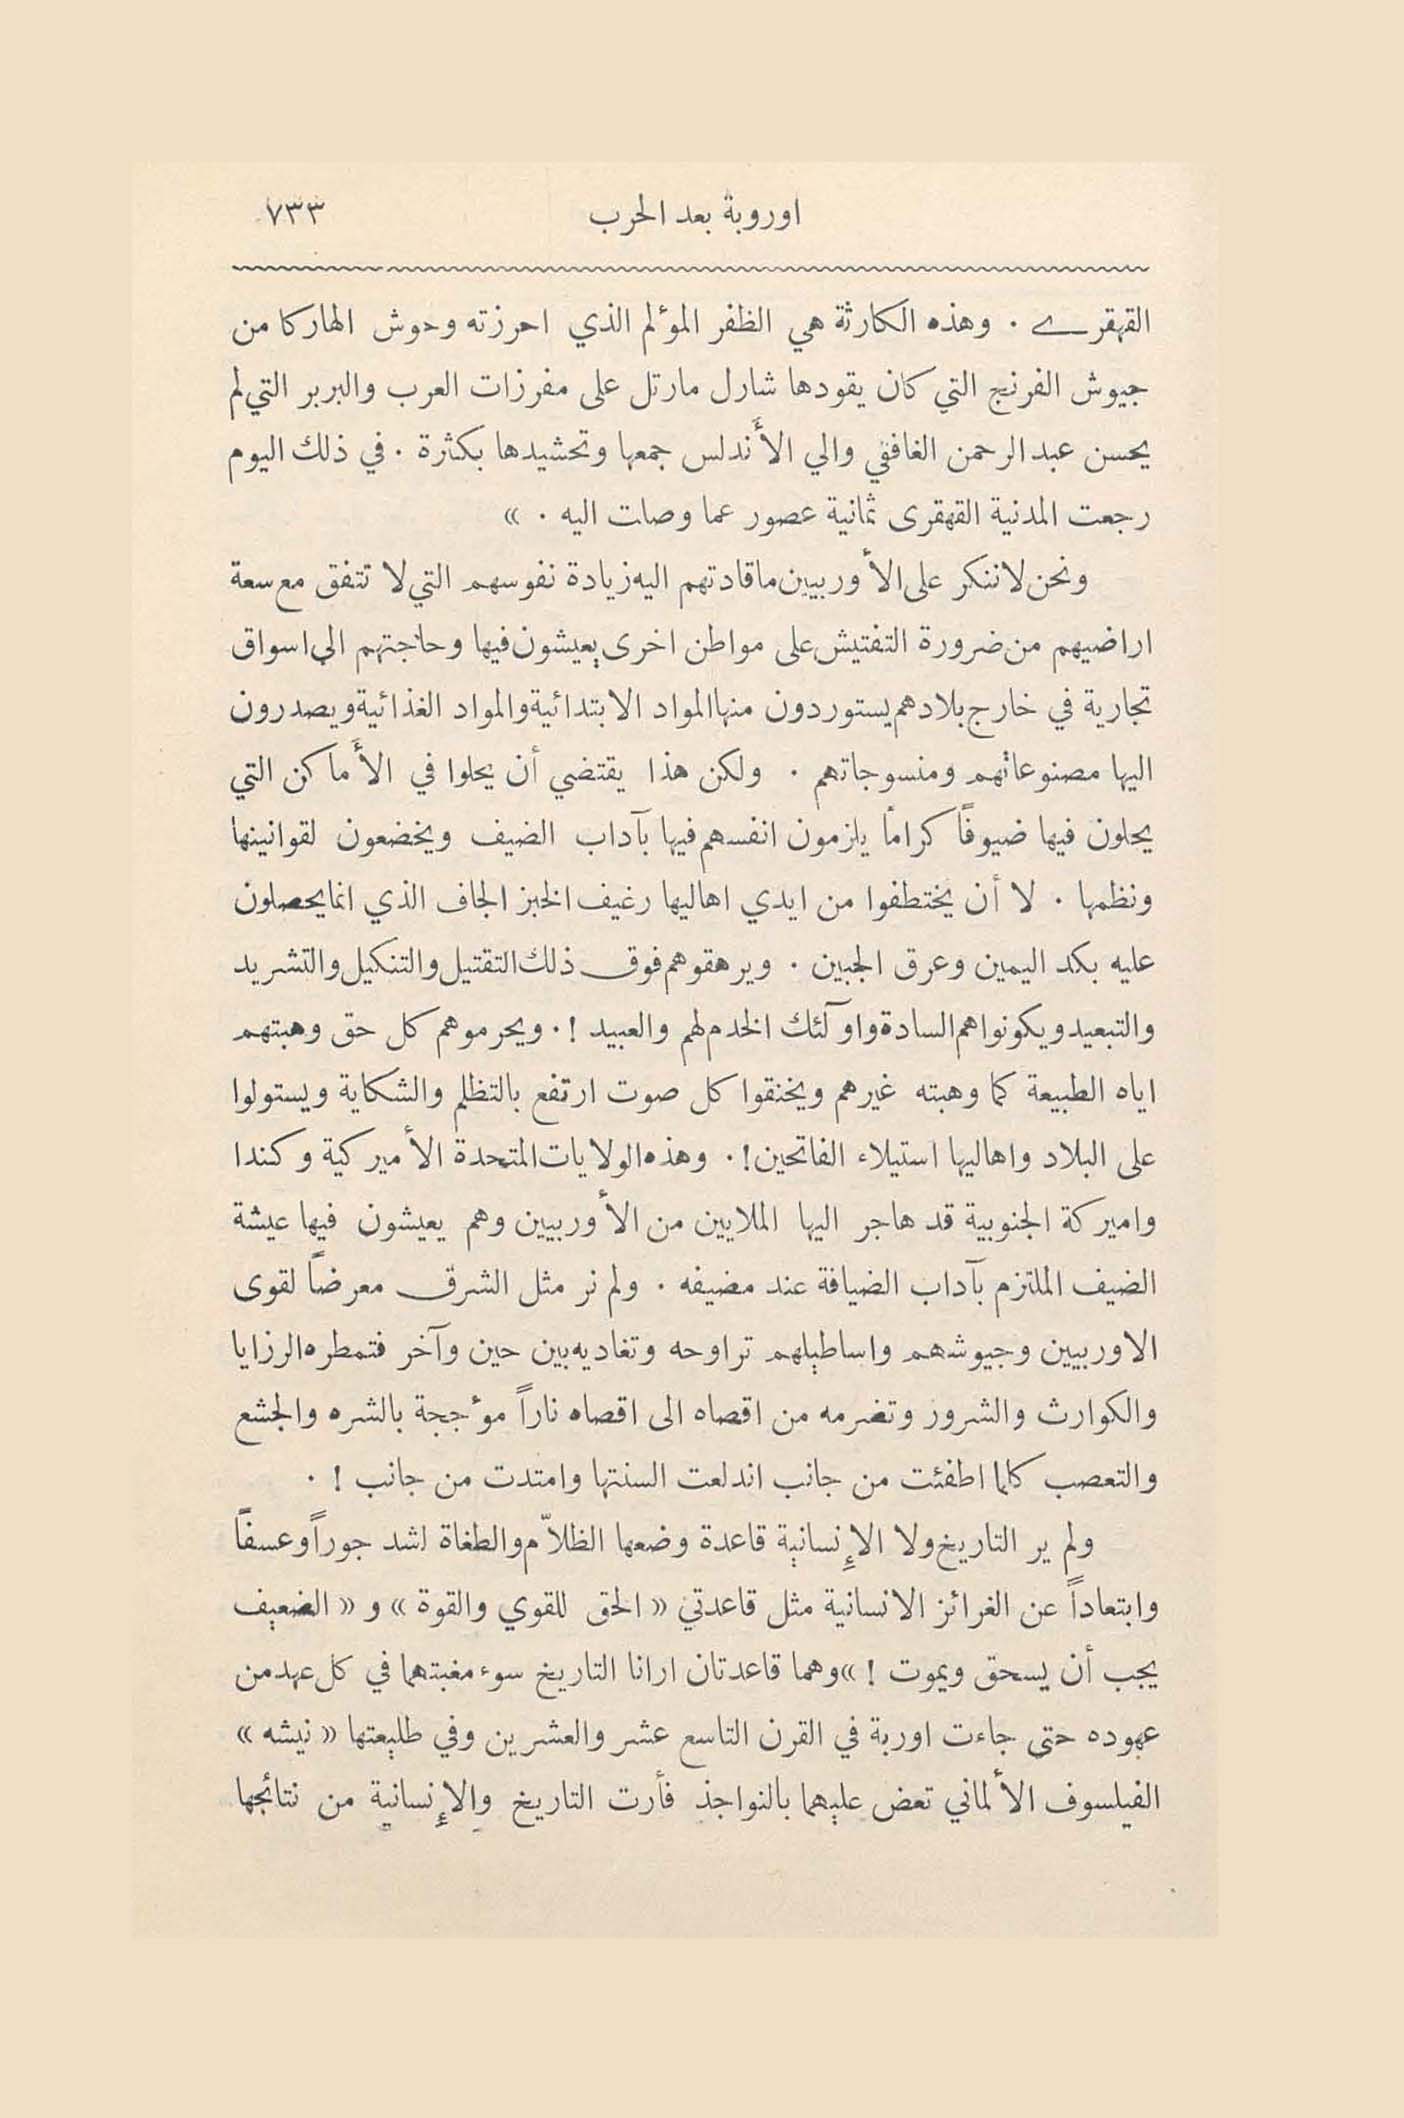 اوروبة بعد الحرب ٧٣٣
القهقرے . وهذه الكارثة هي الظفر المؤلم الذي احرزته وحوش الهاركا من
جيوش الفرنج التي كان يقودها شارل مارتل على مفرزات العرب والبربر التي لم
يحسن عبد الرحمن الغافقي والي الأندلس جمعها وتحشيدها بكثرة . في ذلك اليوم
رجعت المدنية القهقرى ثمانية عصور عما وصلت اليه . »
ونحن لا ننكر على الأوربيين ما قادتهم اليه زيادة نفوسهم التي لا تتفق مع سعة
اراضيهم من ضرورة التفتيش على مواطن اخرى يعيشون فيها وحاجتهم الى اسواق
تجارية في خارج بلادهم يستوردون منها المواد الابتدائية والمواد الغذائية ويصدرون
اليها مصنوعاتهم ومنسوجاتهم . ولكن هذا يقتضي أن يحلوا في الأماكن التي
يحلون فيها ضيوفاً كراماً يلزمون انفسهم فيها بآداب الضيف ويخضعون لقوانينها
ونظمها . لا أن يختطفوا من ايدي اهاليها رغيف الخبز الجاف الذي انما يحصلون
عليه بكد اليمين وعرق الجبين . ويرهقوهم فوق ذلك التقتيل والتنكيل والتشريد
والتبعيد ويكونوا هم السادة واولٓئك الخدم لهم والعبيد ! . ويحرموهم كل حق وهبتهم
اياه الطبيعة كما وهبته غيرهم ويخنقوا كل صوت ارتفع بالتظلم والشكاية ويستولوا
على البلاد واهاليها استيلاء الفاتحين ! . وهذه الولايات المتحدة الأميركية وكندا
واميركة الجنوبية قد هاجر اليها الملايين من الأوربيين وهم يعيشون فيها عيشة
الضيف الملتزم بآداب الضيافة عند مضيفه . ولم نر مثل الشرق معرضاً لقوى
الاوربيين وجيوشهم واساطيلهم تراوحه وتغاديه بين حين وآخر فتمطره الرزايا
والكوارث والشرور وتضرمه من اقصاه الى اقصاه ناراً مؤججة بالشره والجشع
والتعصب كلما اطفئت من جانب اندلعت السنتها وامتدت من جانب ! .
ولم ير التاريخ ولا الإنسانية قاعدة وضعها الظلاّم والطغاة اشد جوراً وعسفاً
وابتعاداً عن الغرائز الانسانية مثل قاعدتي « الحق للقوي والقوة » و « الضعيف
يجب أن يسحق ويموت ! » وهما قاعدتان ارانا التاريخ سوء مغبتهما في كل عهد من
عهوده حتى جاءت اوربة في القرن التاسع عشر والعشرين وفي طليعتها « نيشه »
الفيلسوف الألماني تعض عليهما بالنواجذ فأرت التاريخ والإنسانية من نتائجها